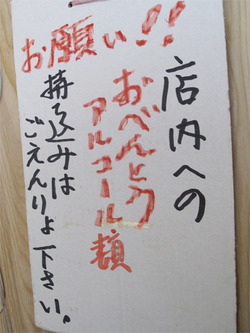 お願い!!
店内への
おべんとう
アルコール類
持込みは
ごえんりょ下さい。